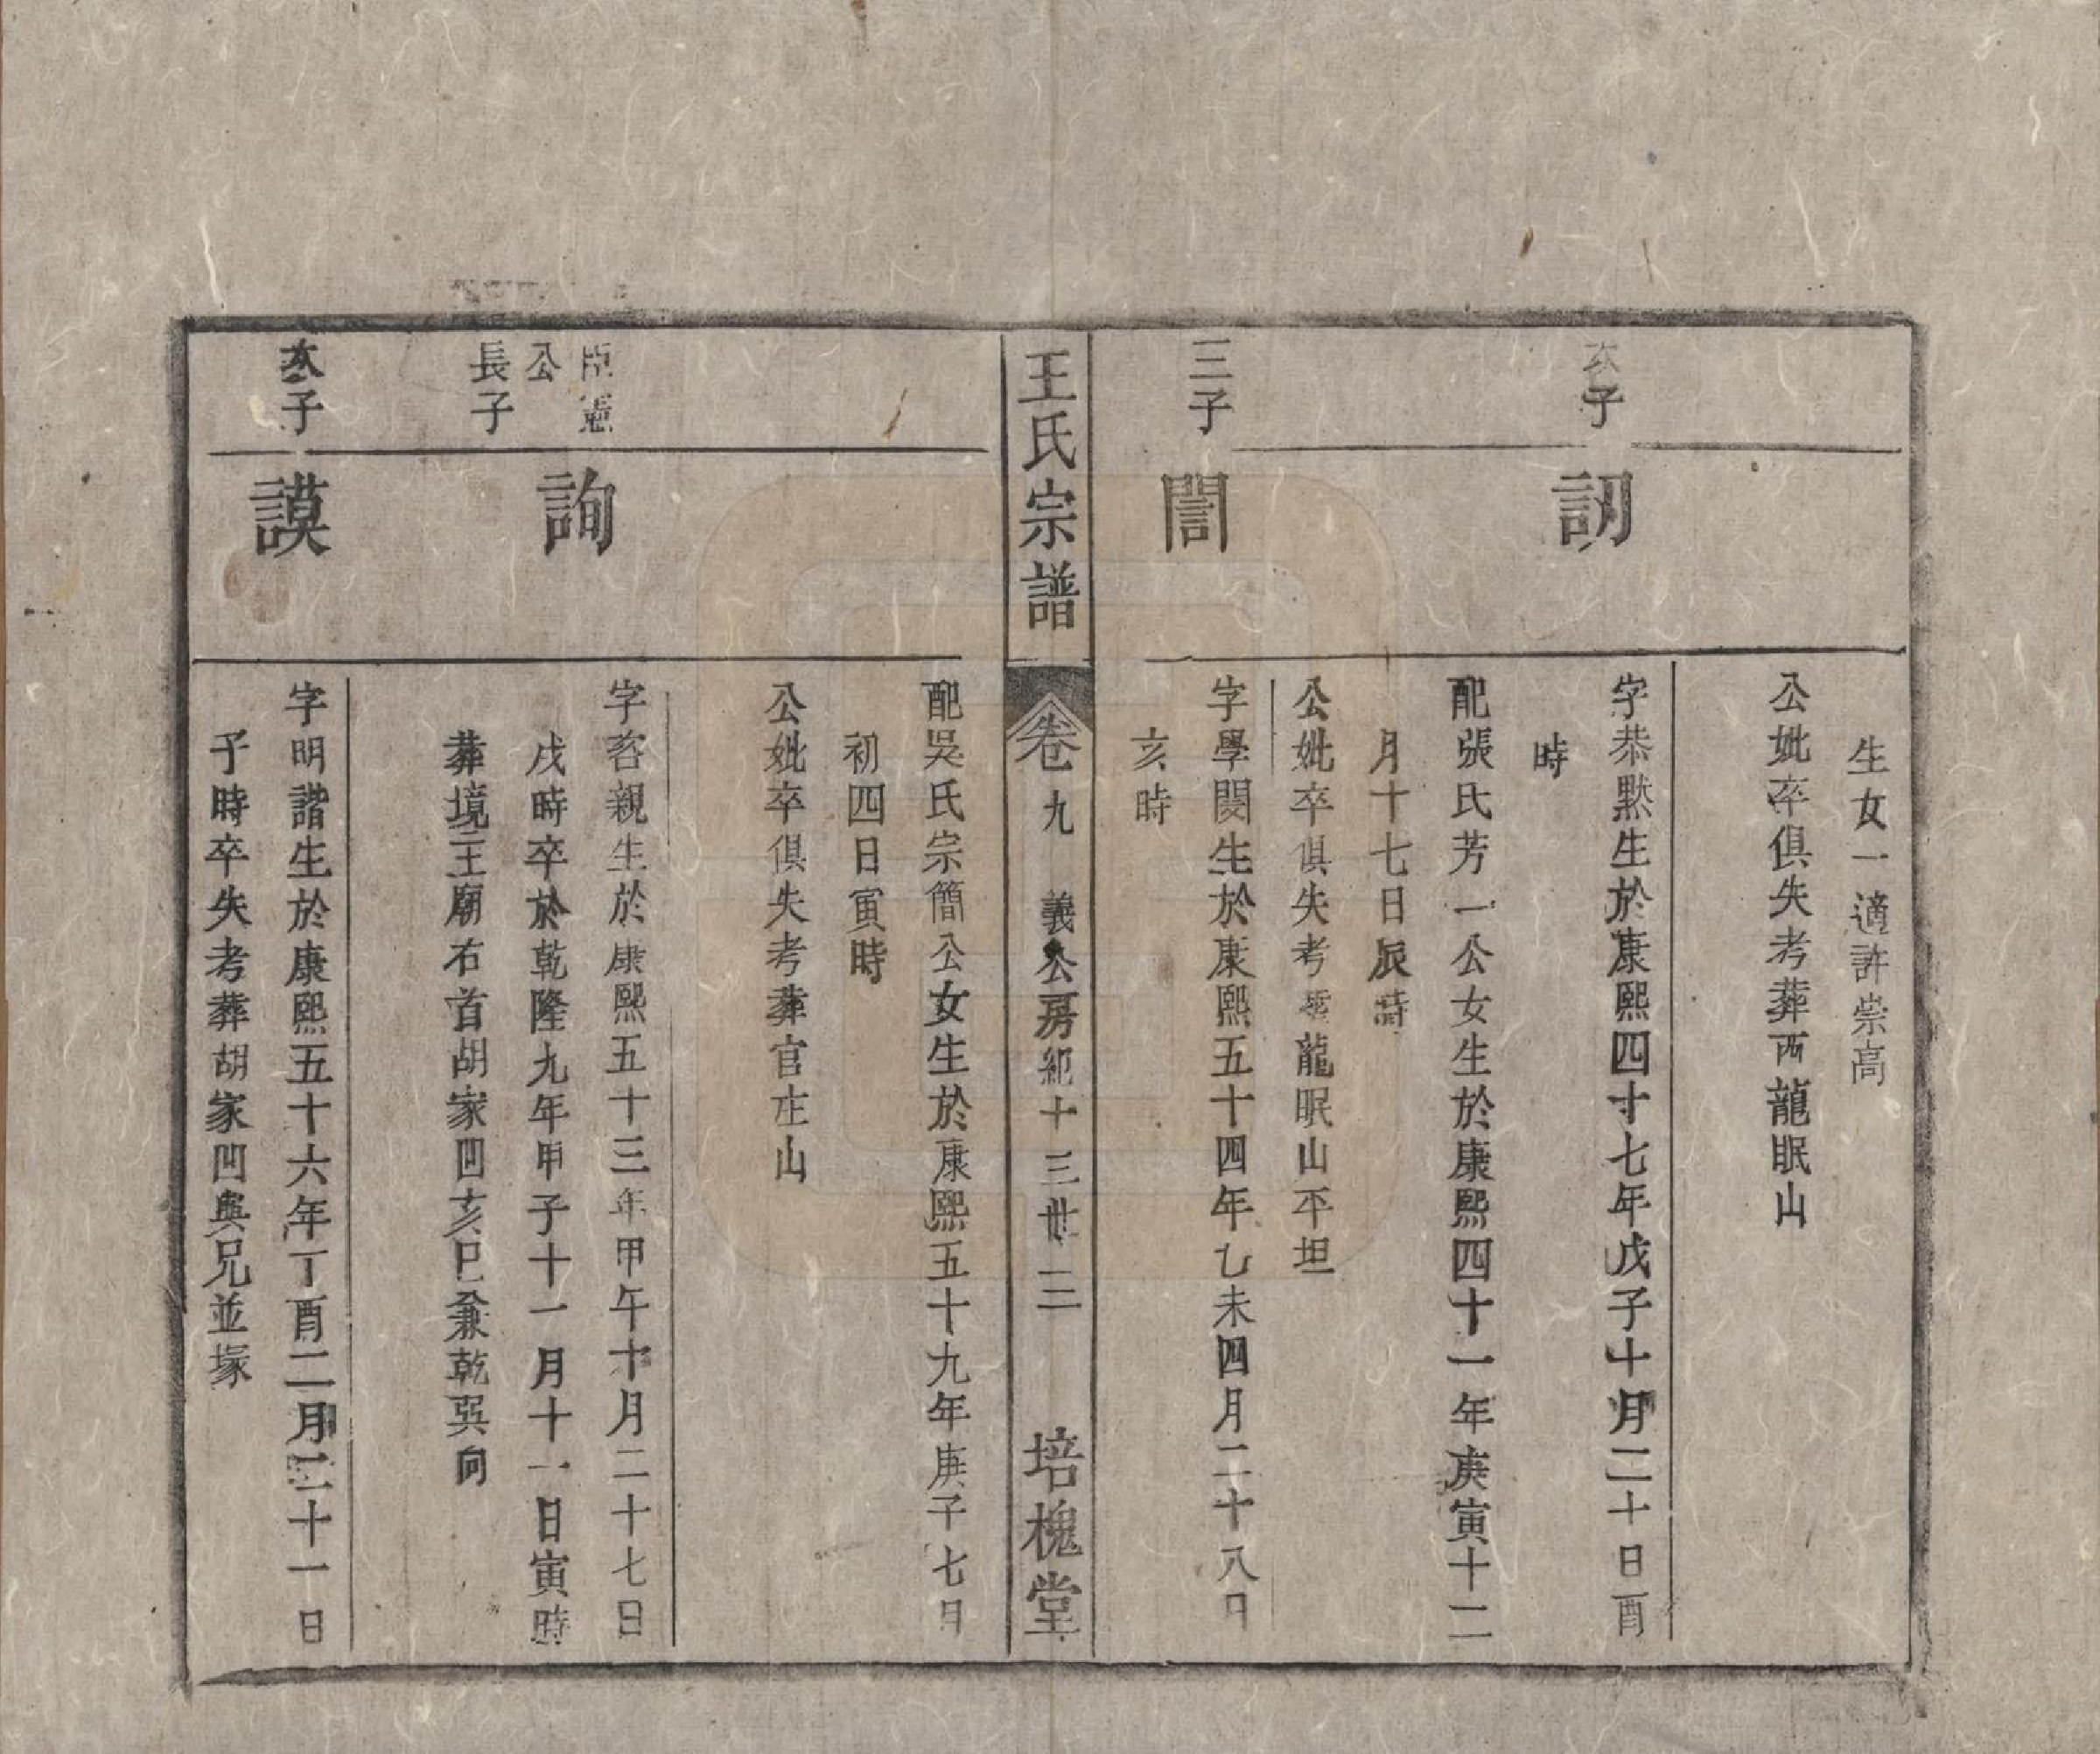 生女一適許崇高
公妣卒俱失考葬西龍眠山
次子
訒
字恭默生於康熙四十七年戊子十月二十日酉
時
配張氏芳一公女生於康熙四十一年庚寅十二
月十七日辰時
公妣卒俱失考葬龍眠山平坦
三子
誾
字學閔生於康熙五十四年乙未四月二十八日
亥時
王氏宗譜
卷九 義公房紀十三世 三
培槐堂
配吳氏宗簡公女生於康熙五十九年庚子七月
初四日寅時
公妣卒俱失考葬官庄山
臣憲
公
長子
詢
字咨親生於康熙五十三年甲午十月二十七日
戌時卒於乾隆九年甲子十一月十一日寅時
葬境主廟右首胡家凹亥巳兼乾巽向
次子
謨
字明諧生於康熙五十六年丁酉二月二十一日
子時卒失考葬胡家凹與兄並塚